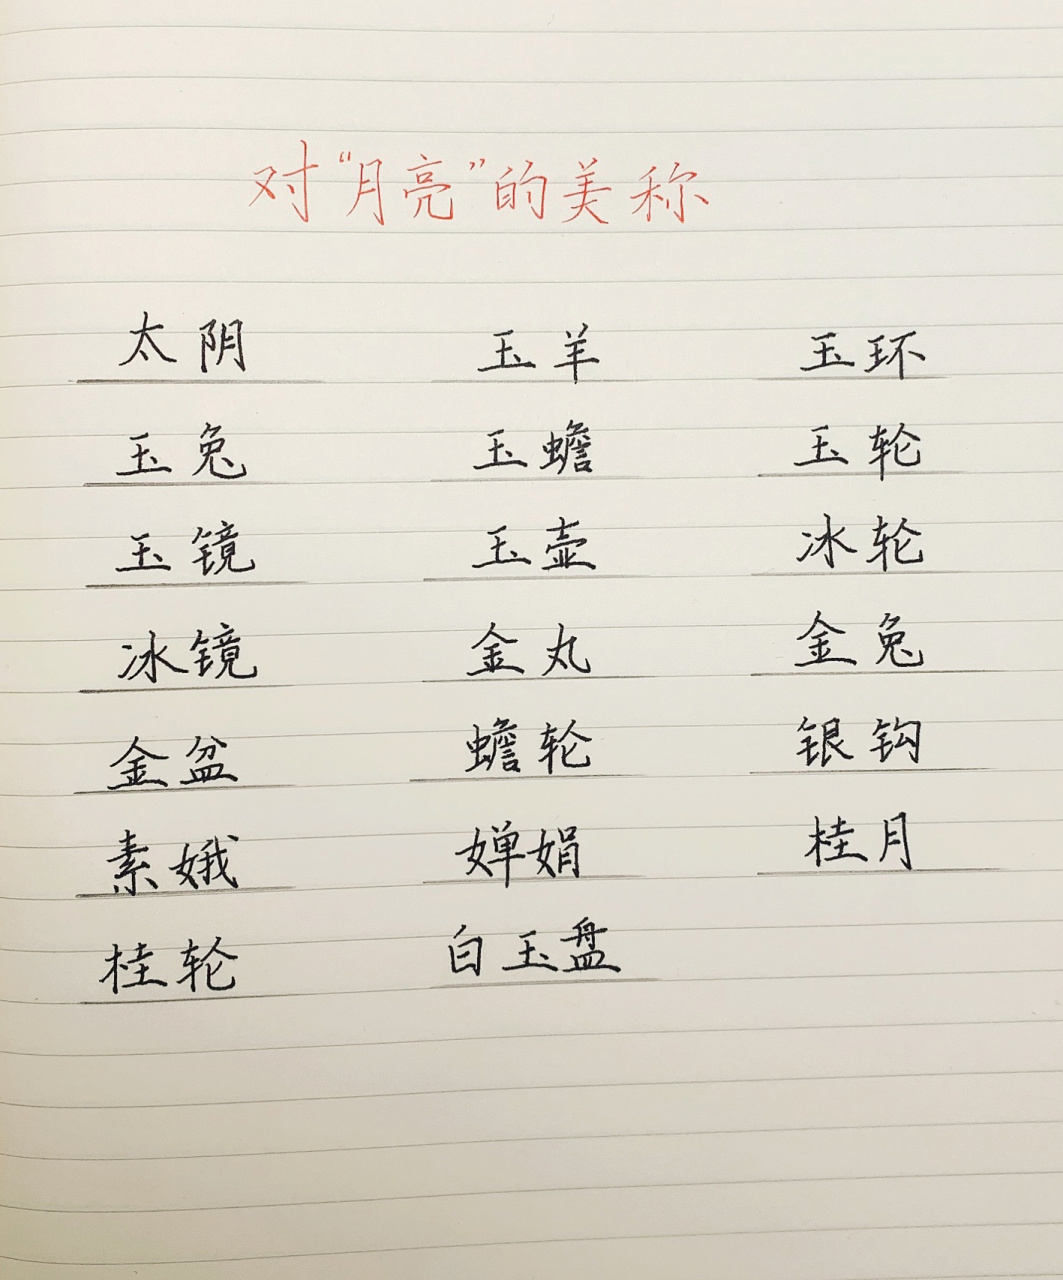 对“月亮”的美称
太阴 玉羊 玉环
玉兔 玉蟾 玉轮
玉镜 玉壶 冰轮
冰镜 金丸 金兔
金盆 蟾轮 银钩
素娥 婵娟 桂月
桂轮 白玉盘